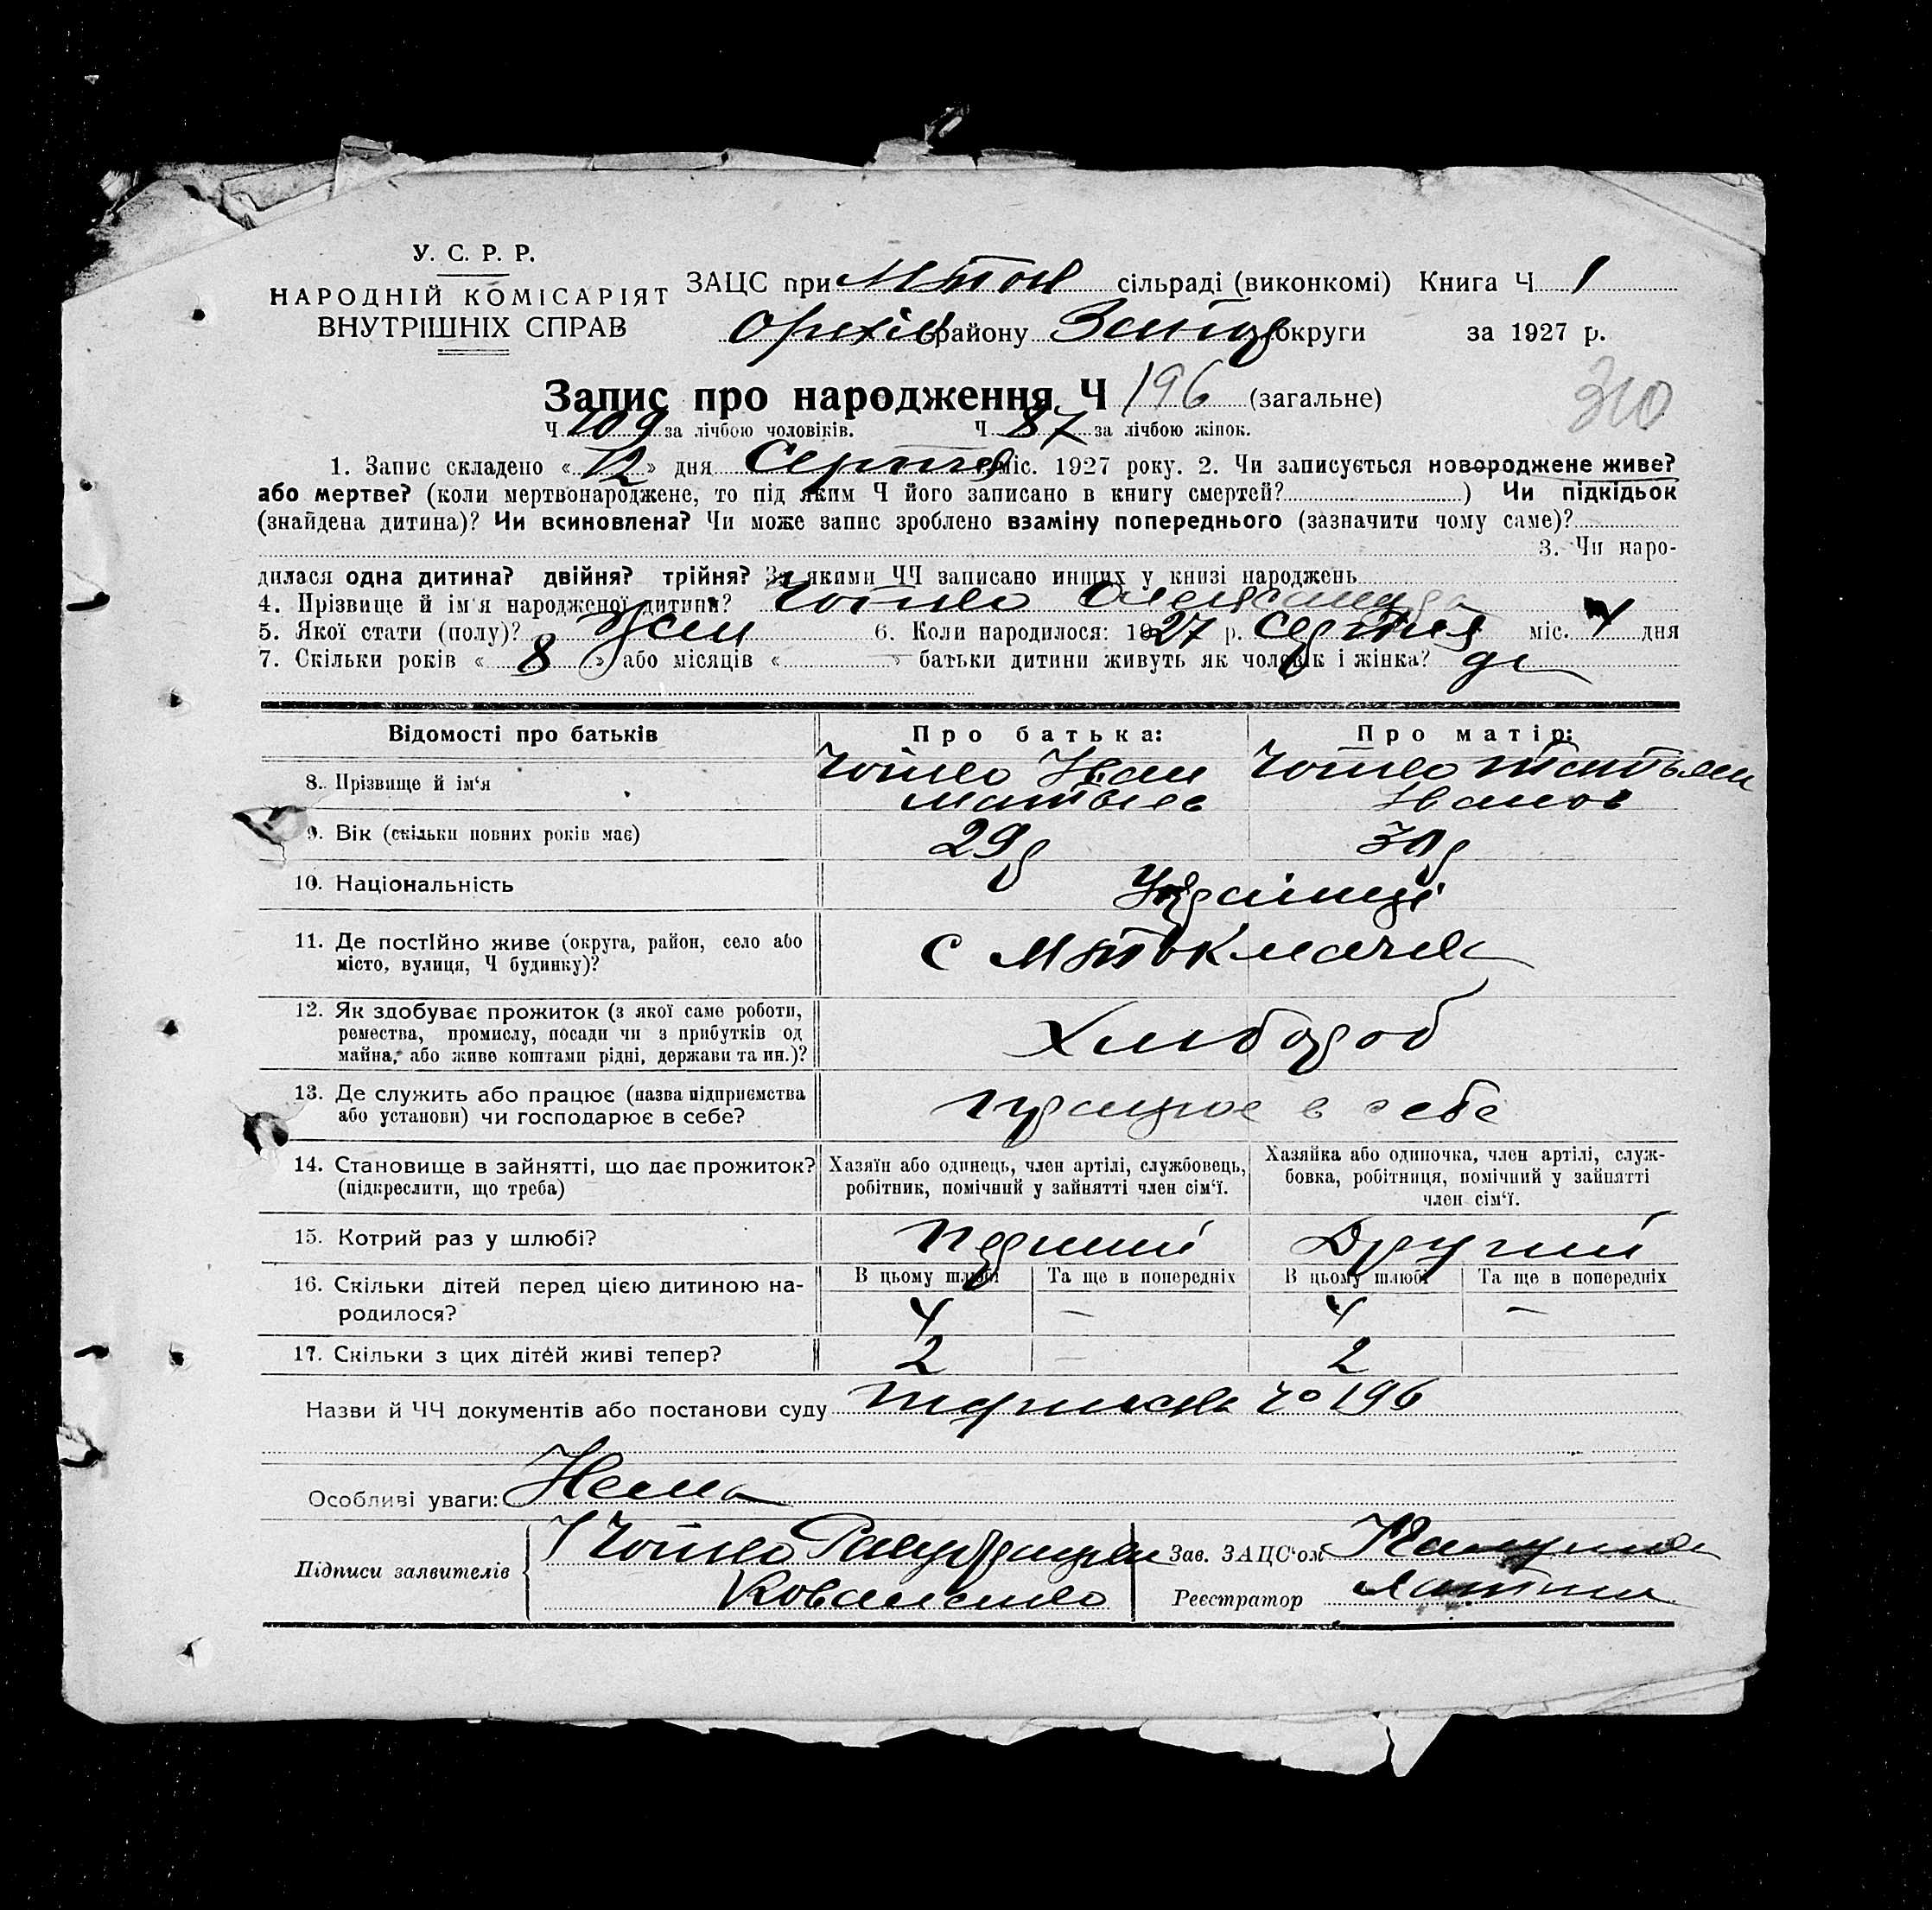 У. С. Р. Р.
НАРОДНІЙ КОМІСАРІЯТ
ВНУТРІШНІХ СПРАВ
ЗАЦС при МТок сільраді (виконкомі) Книга Ч 1
Оріхів району Запор округи за 1927 р.
Запис про народження Ч 196 (загальне)
310
Ч 109 за лічбою чоловіків. Ч 87 за лічбою жінок.
1. Запис складено « 12 » дня Серпня міс. 1927 року. 2. Чи записується новороджене живе?
або мертве? (коли мертвонароджене, то під яким Ч його записано в книгу смертей? ) Чи підкідьок
(знайдена дитина)? Чи всиновлена? Чи може запис зроблено взаміну попереднього (зазначити чому саме)?
3. Чи наро-
дилася одна дитина? двійня? трійня? За якими ЧЧ записано инших у книзі народжень
4. Прізвище й ім'я народженої дитини? Олександра
5. Якої стати (полу)? Жін 6. Коли народилося: 1927 р. Серпня міс. 4 дня
7. Скільки років « 8 » або місяців « » батьки дитини живуть як чоловік і жінка?
Відомості про батьків Про батька: Про матір:
8. Прізвище й ім'я Іван
Матвіев Іванов
9. Вік (скільки повних років має) 29р 30р
10. Національність Українці
11. Де постійно живе (округа, район, село або
місто, вулиця, Ч будинку)? С МТокмачка
12. Як здобуває прожиток (з якої саме роботи,
ремества, промислу, посади чи з прибутків од
майна, або живе коштами рідні, держави та ин.)? Хлібороб
13. Де служить або працює (назва підприємства
або установи) чи господарює в себе? працює в себе
14. Становище в зайнятті, що дає прожиток?
(підкреслити, що треба)
Хазяїн або одинець, член артілі, службовець,
робітник, помічний у зайнятті член сім'ї.
Хазяйка або одиночка, член артілі, служ-
бовка, робітниця, помічний у зайнятті
член сім'ї.
15. Котрий раз у шлюбі? Перший Другий
16. Скільки дітей перед цією дитиною на-
родилося?
В цьому шлюбі Та ще в попередніх В цьому шлюбі Та ще в попередніх
4 — 4 —
17. Скільки з цих дітей живі тепер? 2 — 2
Назви й ЧЧ документів або постанови суду 196
Особливі уваги: Нема
Підписи заявителів
Коваленко
Зав. ЗАЦС'ом
Реєстратор